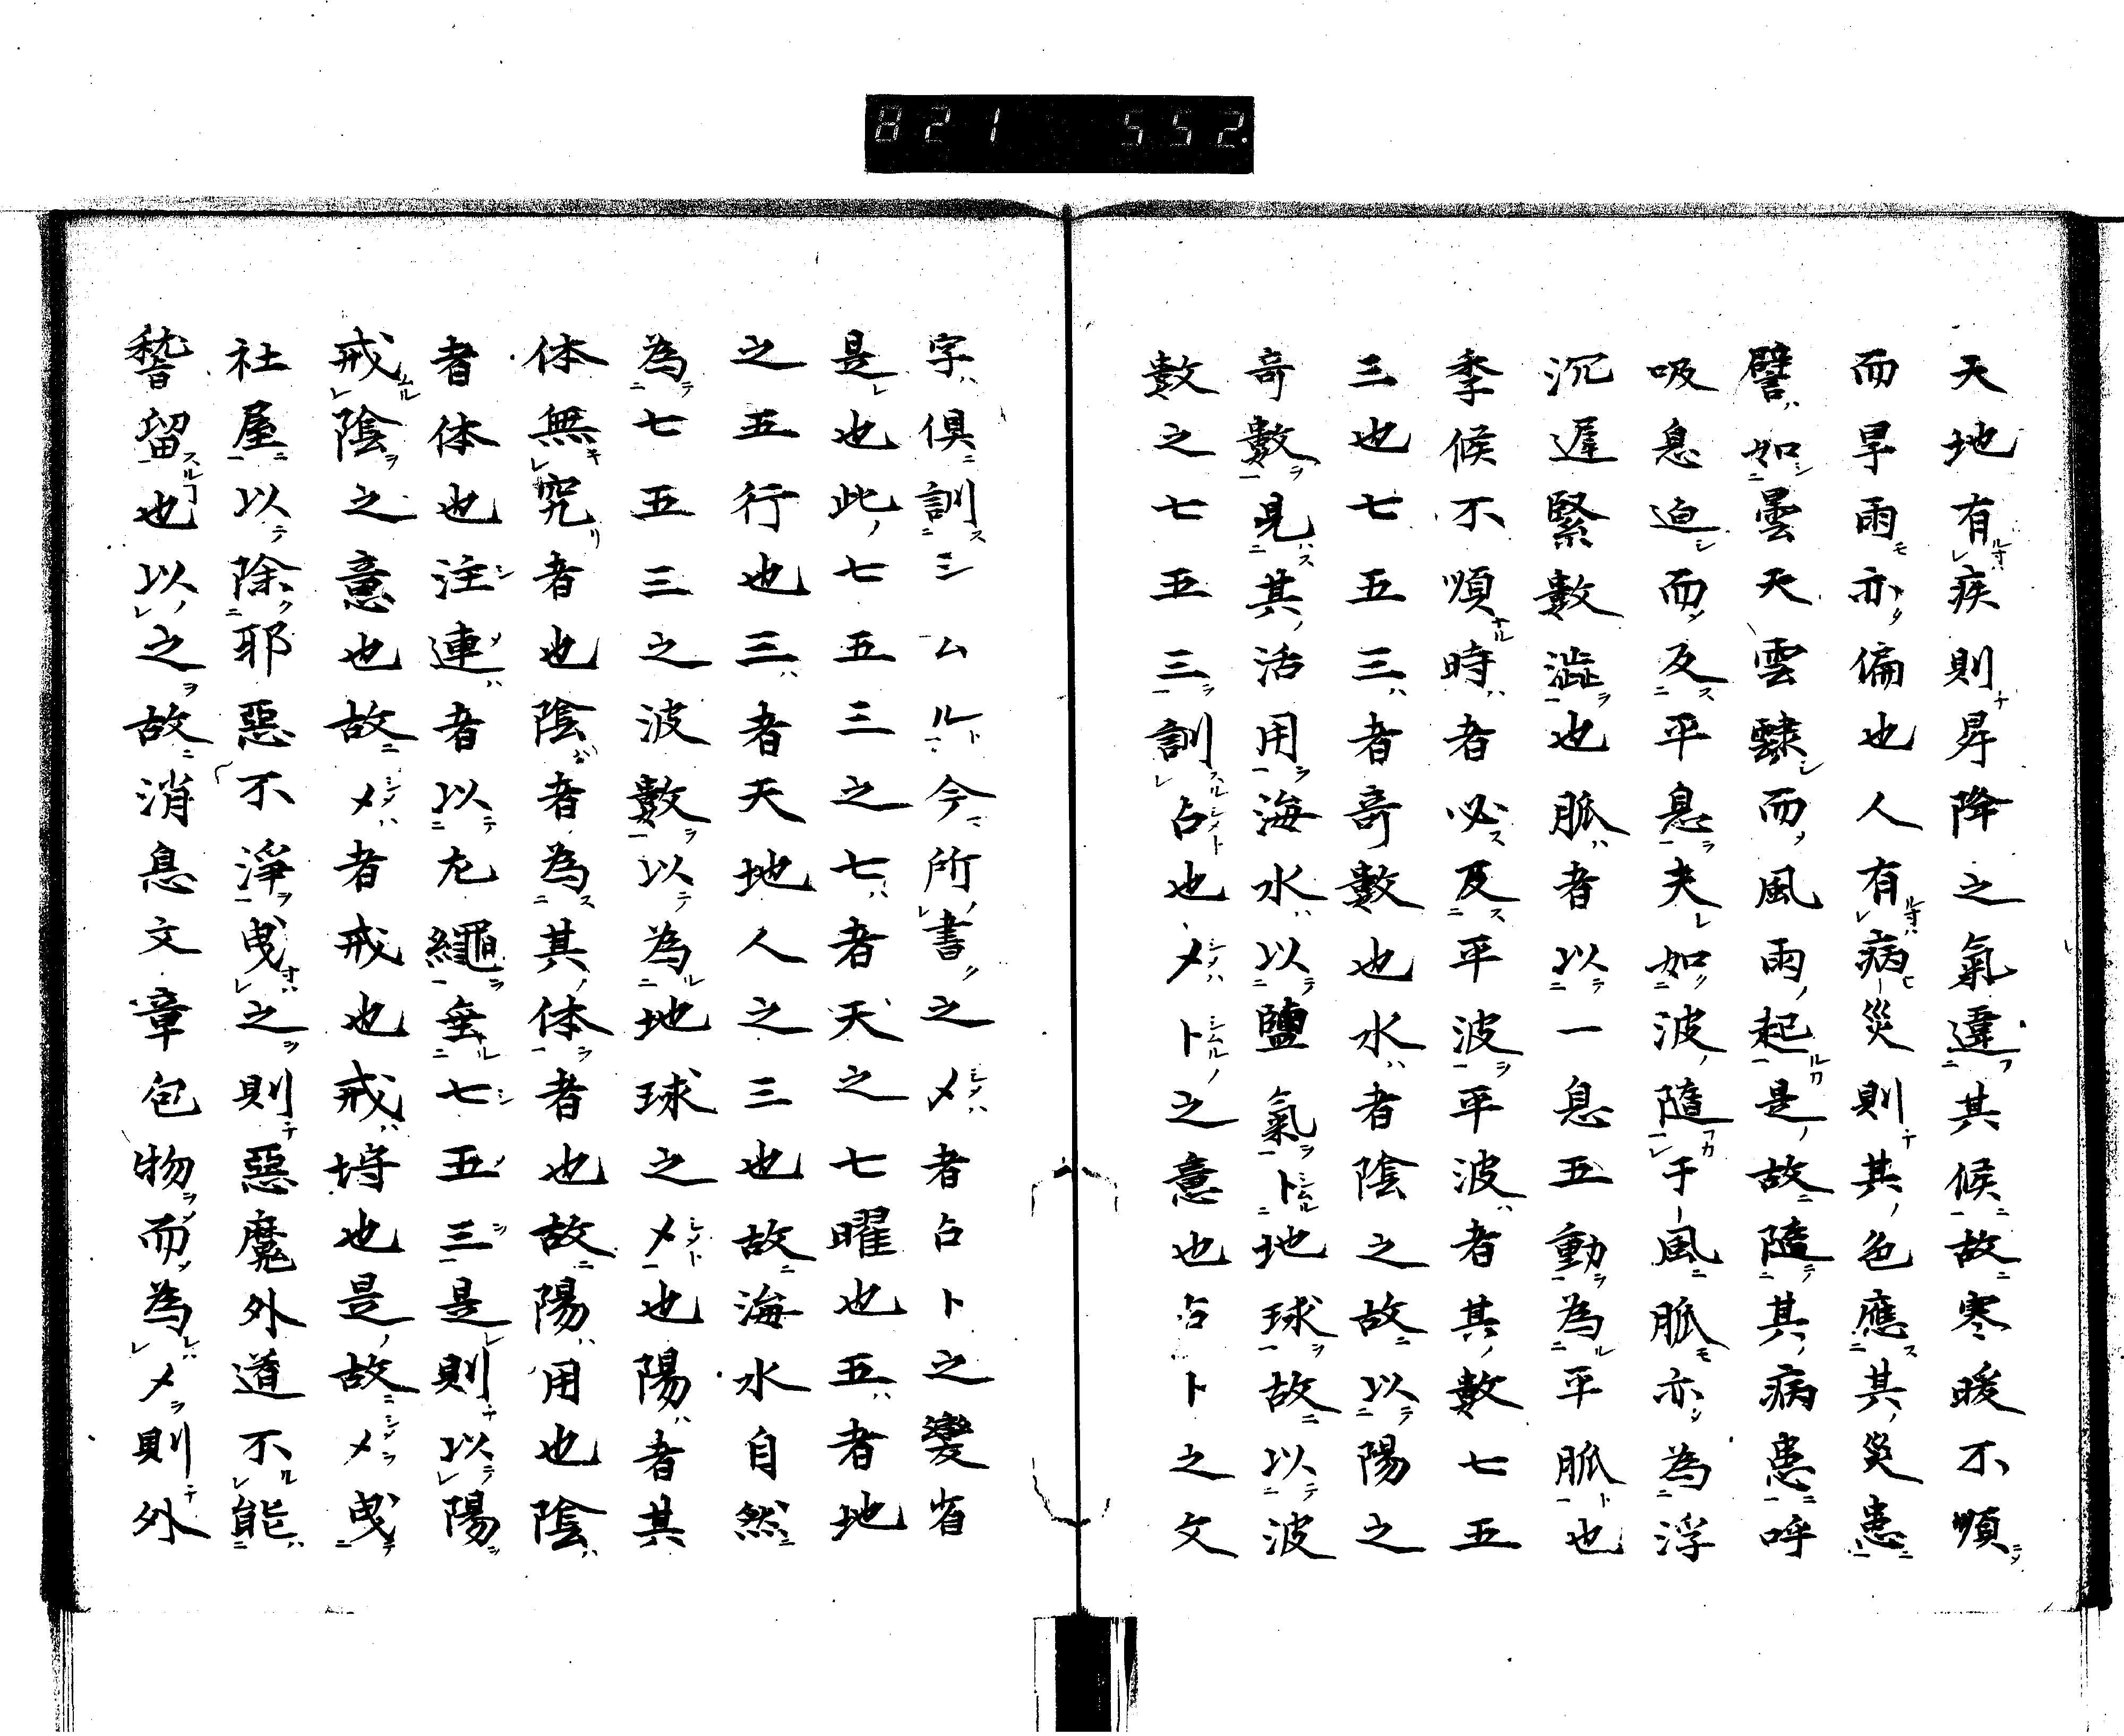 821 552.
天地有疾則昇降之氣違其候故寒暖不順
而旱雨亦偏也人有病災則其色應其災患
譬如曇天雲靆而風雨起是故隨其病患呼
吸息迫而反平息夫如波隨于風脈亦為浮
沉遲緊數澁也脈者以一息五動為平脈也
季候不順時者必反平波平波者其數七五
三也七五三者奇數也水者陰之故以陽之
奇數見其活用海水以鹽氣卜地球故以波
數之七五三訓占也〆卜之意也占卜之文
字俱訓シムル今所書之〆者占卜之變省
是也此七五三之七者天之七曜也五者地
之五行也三者天地人之三也故海水自然
為七五三之波數以為地球之〆也陽者其
体無究者也陰者為其体者也故陽用也陰
者体也注連者以左繩垂七五三是則以陽
戒陰之意也故〆者戒也戒垨也是故〆曵
社屋以除耶惡不淨曵之則惡魔外道不能
稽留也以之故消息文章包物而為〆則外